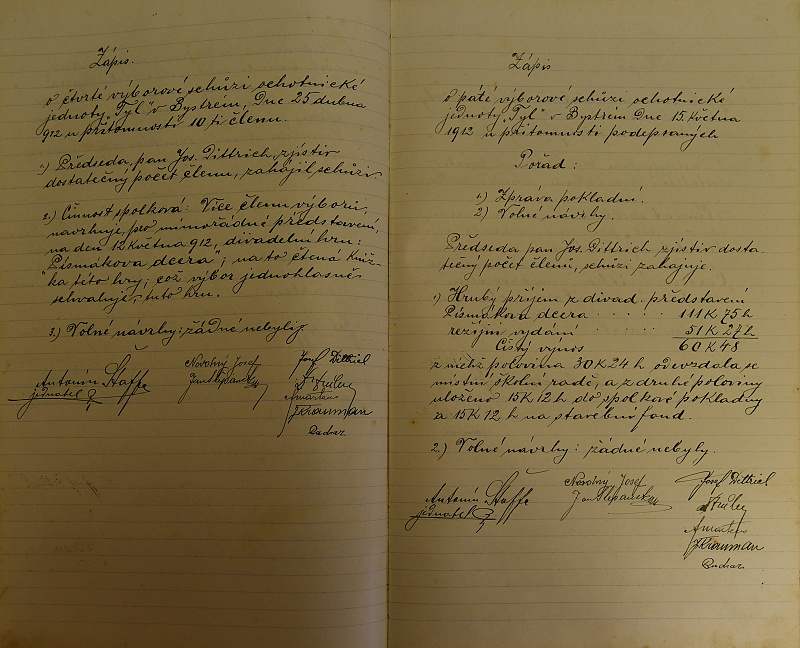 Zápis.
o čtvrté výborové schůzi ochotnické
jednoty „Tyl" v Bystrém, Dne 25 dubna
912 u přítomnosti 10 ti členu.
1.) Předseda, pan Jos. Dittrich, zjistiv
dostatečný počet členu, zahájil schůzi.
2.) Činnost spolková: Více členu výboru,
navrhuje, pro mimořádné představení,
na den 12 května 912, divadelní hru:
"Písmákova dcera"; na to čtená kniž-
ka této hry, což výbor jednohlasně
schvaluje, tuto hru.
3.) Volné návrhy: žádné nebyly.
Antonín Šlaffa
jednatel
Novotný Josef
Jan Štěpánek
Josef Dittrich
JKrauman
Zápis
o páté výborové schůzi ochotnické
jednoty „Tyl" v Bystrém Dne 15. května
1912 u přítomnisti podepsaných
Pořad:
1.) Zpráva pokladní.
2) Volné návrhy.
Předseda pan Jos. Dittrich zjistiv dosta-
tečný počet členů, schůzi zahajuje.
1) Hrubý příjem z divad. představení
Písmákova dcera . . . . . . 111 K 75 h
režijní vydání . . . . 51 K 27 h
Čistý výnos 60 K 48
z nichž polovina 30 K 24 h odevzdala se
místní školní radě, a z druhé poloviny
uloženo 15 K 12 h do spolkové pokladny
a 15 K 12 h na stavební fond.
2.) Volné návrhy: žádné nebyly.
Antonín Šlaffa
jednatel
Novotný Josef
Jan Štěpánek
Josef Dittrich
JKrauman